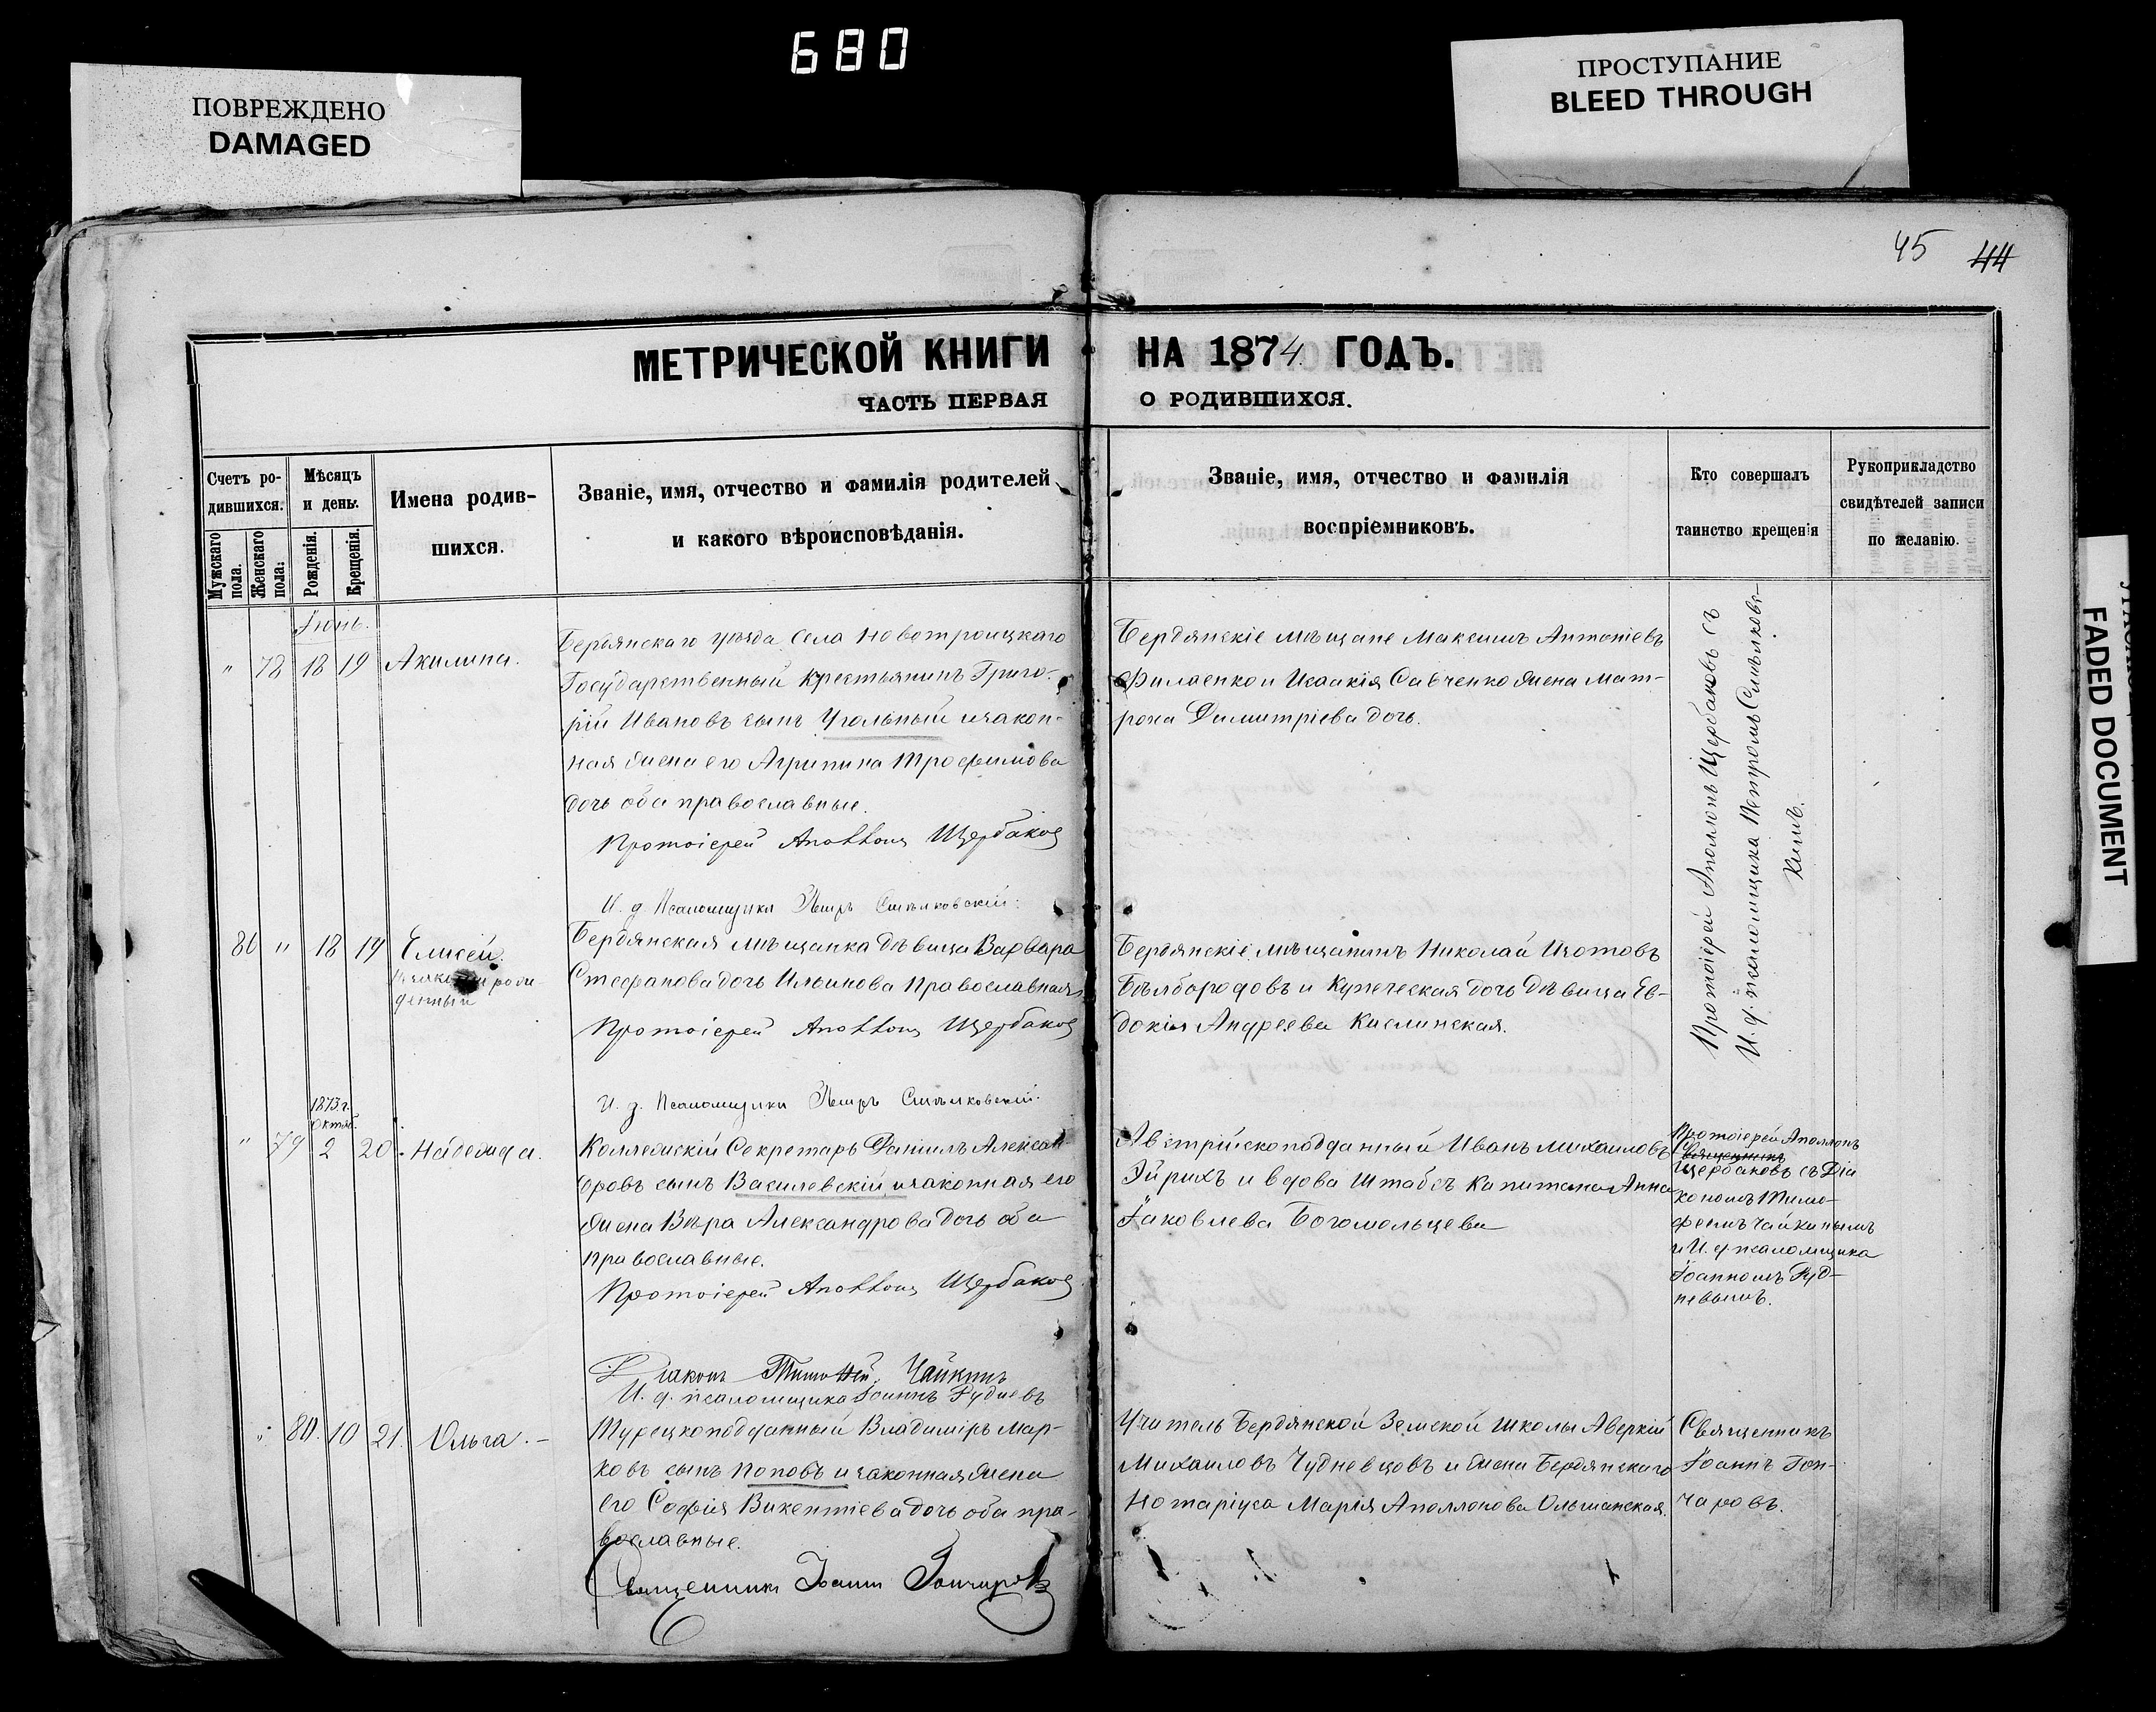 680
ПОВРЕЖДЕНО
DAMAGED
ПРОСТУПАНИЕ
BLEED THROUGH
FADED DOCUMENT
45 44
МЕТРИЧЕСКОЙ КНИГИ НА 1874 ГОДЪ.
ЧАСТЬ ПЕРВАЯ О РОДИВШИХСЯ.
Счетъ ро-
дившихся.
Мужскаго
пола.
Женскаго
пола.
Мѣсяцъ
и день.
Рожденія.
Крещенія.
Имена родив-
шихся.
Званіе, имя, отчество и фамилія родителей
и какого вѣроисповѣданія.
Званіе, имя, отчество и фамилія
воспріемниковъ.
Кто совершалъ
таинство крещенія
Рукоприкладство
свидѣтелей записи
по желанію.
Іюнь.
" 78 18 19 Акилина.
Бердянскаго уѣзда Села Новотроицкаго
Государственный Крестьянинъ Григо-
рій Ивановъ сынъ Угольный и закон-
ная жена его Агрипина Трофимова
дочь оба православные.
Протоіерей Аполлонъ Щербаковъ
И. д Псаломщика Петръ Смѣлковскій.
Бердянскіе мѣщане Максимъ Антоніевъ
Филаенко и Исаакія Савченко жена Мат-
рона Димитріева дочь.
Протоіерей Аполлонъ Щербаковъ съ
И. д. псаломщика Петромъ Смѣлковс-
кимъ.
80 " 18 19 Елисей.
денный
Бердянская мѣщанка дѣвица Варвара
Стефанова дочь Ильинова Православная
Протоіерей Аполлонъ Щербаковъ
И. д. Псаломщика Петръ Смѣлковскій.
Бердянскіе мѣщанинъ Николай Изотовъ
Бѣлбородовъ и Купеческая дочь дѣвица Ев-
докія Андреева Кислинская.
1873 г.
Октяб.
" 79 2 20. Надежда.
Коллежскій Секретарь Даніилъ Алексан-
дровъ сынъ Василевскій и законная его
жена Вѣра Александрова дочь оба
православные.
Протоіерей Аполлонъ Щербаковъ
Діаконъ Тимоѳей Чайкинъ
И. д. псаломщика Іоаннъ Рудневъ
Австрійскоподданный Иванъ Михаиловъ
Эйрихъ и вдова Штабсъ Капитана Анна
Іаковлева Богомольцева
Протоіерей Аполлонъ
Священникъ
Щербаковъ съ Діа
кономъ Тимо-
феемъ Чайкинымъ
и И. д псаломщика
Іоанномъ Руд-
невымъ.
" 80. 10 21. Ольга. -
Турецкоподданный Владиміръ Мар-
ковъ сынъ Поповъ и законная жена
его Софія Викентіева дочь оба пра-
вославные.
Священникъ Іоаннъ Гончаровъ
Учитель Бердянской Земской школы Аверкій
Михаиловъ Чудневцовъ и жена Бердянскаго
Нотаріуса Марія Аполлонова Ольшанская.
Священникъ
Іоаннъ Гон-
чаровъ.